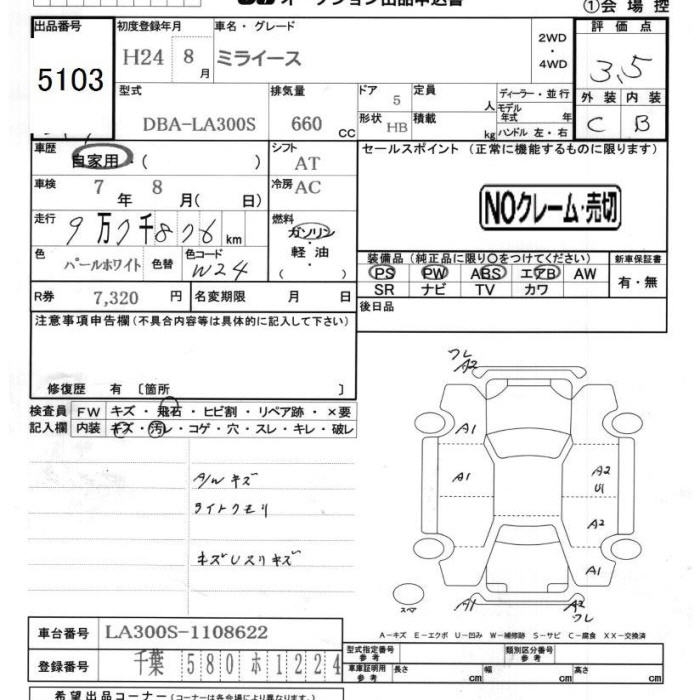 オークション出品申込書
①会場控
出品番号 5103
初度登録年月 H24 8月
車名・グレード ミライース
2WD・4WD
評価点 3.5
外装 C 内装 B
型式 DBA-LA300S
排気量 660 CC
ドア 5
形状 HB
定員 人
積載 kg
ディーラー・並行
モデル年式 年
ハンドル 左・右
車歴 自家用・( )
シフト AT
車検 7年 8月( 日)
冷房 AC
走行 9万 千8 km
燃料 ガソリン・軽油・( )
色 パールホワイト 色替
色コード W24
R券 7,320 円
名変期限 月 日
セールスポイント (正常に機能するものに限ります)
NOクレーム・売切
装備品(純正品に限り○をつけてください)
PS PW ABS エアB AW
SR ナビ TV カワ
新車保証書
有・無
後日品
注意事項申告欄(不具合内容等は具体的に記入して下さい)
修復歴 有 〔箇所 〕
検査員記入欄
FW キズ・飛石・ヒビ割・リペア跡・×要
内装 キズ・汚レ・コゲ・穴・スレ・キレ・破レ
A/W キズ
ライトクモリ
フレ A2
A1
A1
A2
U1
A2
A1
スペア
A1
A2
フレ
A-キズ E-エクボ U-凹み W-補修跡 S-サビ C-腐食 XX-交換済
車台番号 LA300S-1108622
登録番号 千葉 580 ホ 1224
型式指定番号 参考
類別区分番号 参考
車庫証明用 参考 長さ cm 幅 cm 高さ cm
希望出品コーナー(コーナーは各会場により異なります。)